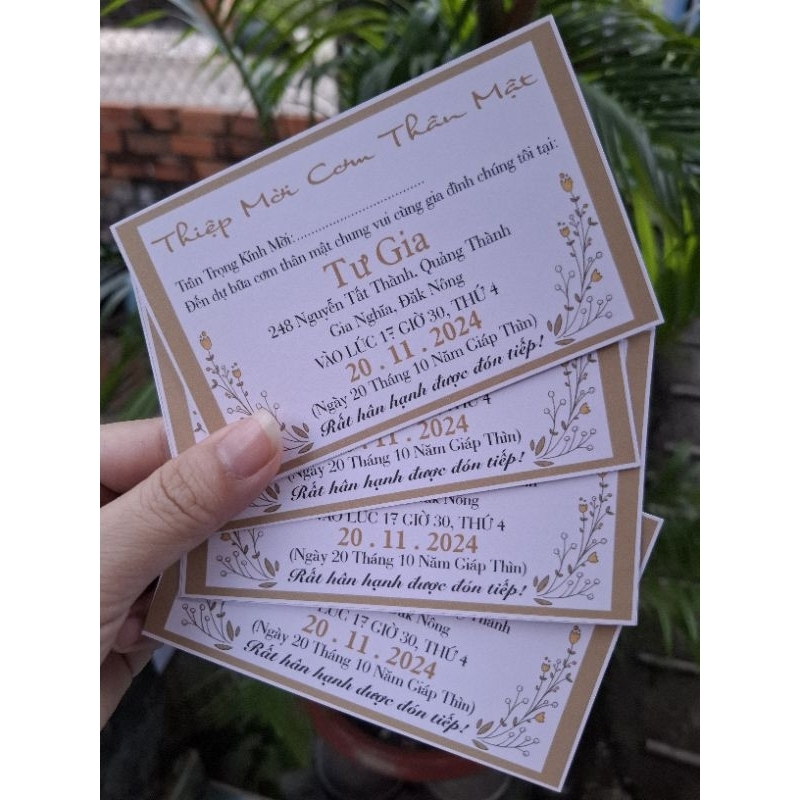 Thiệp Mời Cơm Thân Mật
Trân Trọng Kính Mời:...............................
Đến dự bữa cơm thân mật chung vui cùng gia đình chúng tôi tại:
Tư Gia
248 Nguyễn Tất Thành, Quảng Thành
Gia Nghĩa, Đăk Nông
VÀO LÚC 17 GIỜ 30, THỨ 4
20 . 11 . 2024
(Ngày 20 Tháng 10 Năm Giáp Thìn)
Rất hân hạnh được đón tiếp!
Ứ 4
11 . 2024
(Ngày 20 Tháng 10 Năm Giáp Thìn)
Rất hân hạnh được đón tiếp!
Nông
VÀO LÚC 17 GIỜ 30, THỨ 4
20 . 11 . 2024
(Ngày 20 Tháng 10 Năm Giáp Thìn)
Rất hân hạnh được đón tiếp!
Thành
Đăk Nông
LÚC 17 GIỜ 30, THỨ 4
20 . 11 . 2024
(Ngày 20 Tháng 10 Năm Giáp Thìn)
Rất hân hạnh được đón tiếp!